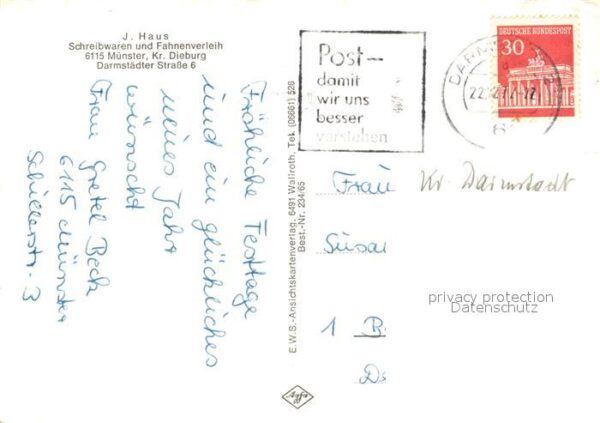 J. Haus
Schreibwaren und Fahnenverleih
6115 Münster, Kr. Dieburg
Darmstädter Straße 6
Fröhliche Festtage
und ein glückliches
neues Jahr
wünscht
Frau Gretel Beck
6115 Münster
Schillerstr. 3
E.W.S.-Ansichtskartenverlag, 6491 Wallroth, Tel. (06661) 526
Best.-Nr. 234/65
Post-
damit
wir uns
besser
verstehen
DEUTSCHE BUNDESPOST
30
Frau
Kr. Darmstadt
Susa
1 B
Ds
privacy protection
Datenschutz
Agfa